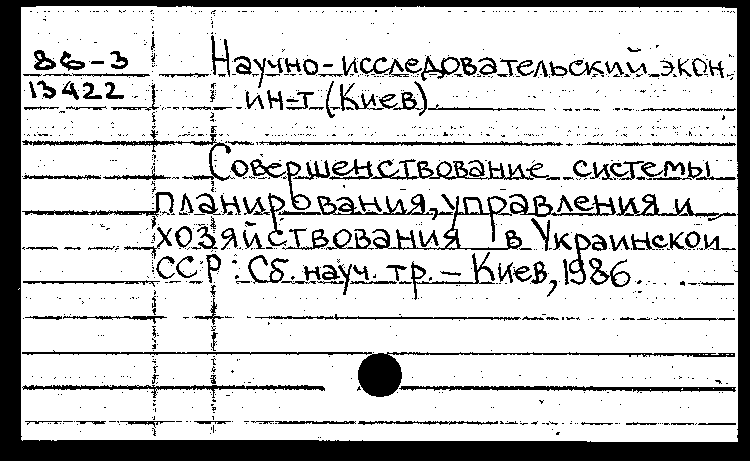 86-3
13422
Научно-исследовательский экон.
ин-т (Киев).
Совершенствование системы
планирования, управления и
хозяйствования в Украинской
ССР: Сб. науч. тр. – Киев, 1986.